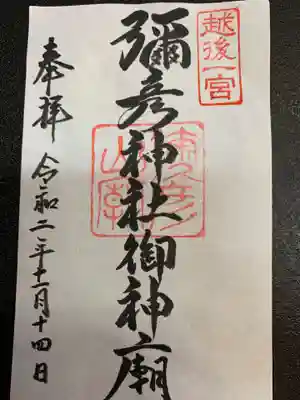 越後一宮
彌彦神社御神廟
奉拝
令和二年十一月十四日